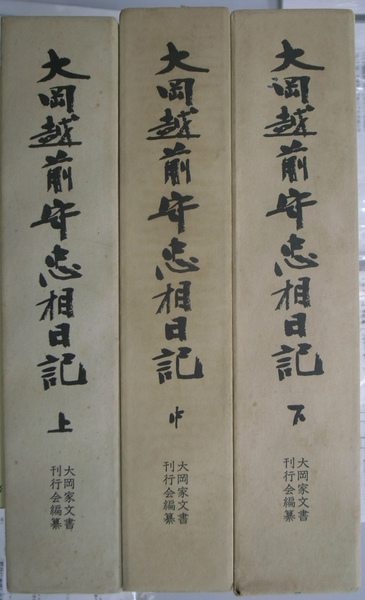 大岡越前守忠相日記 上
大岡家文書
刊行会編纂
大岡越前守忠相日記 中
大岡家文書
刊行会編纂
大岡越前守忠相日記 下
大岡家文書
刊行会編纂